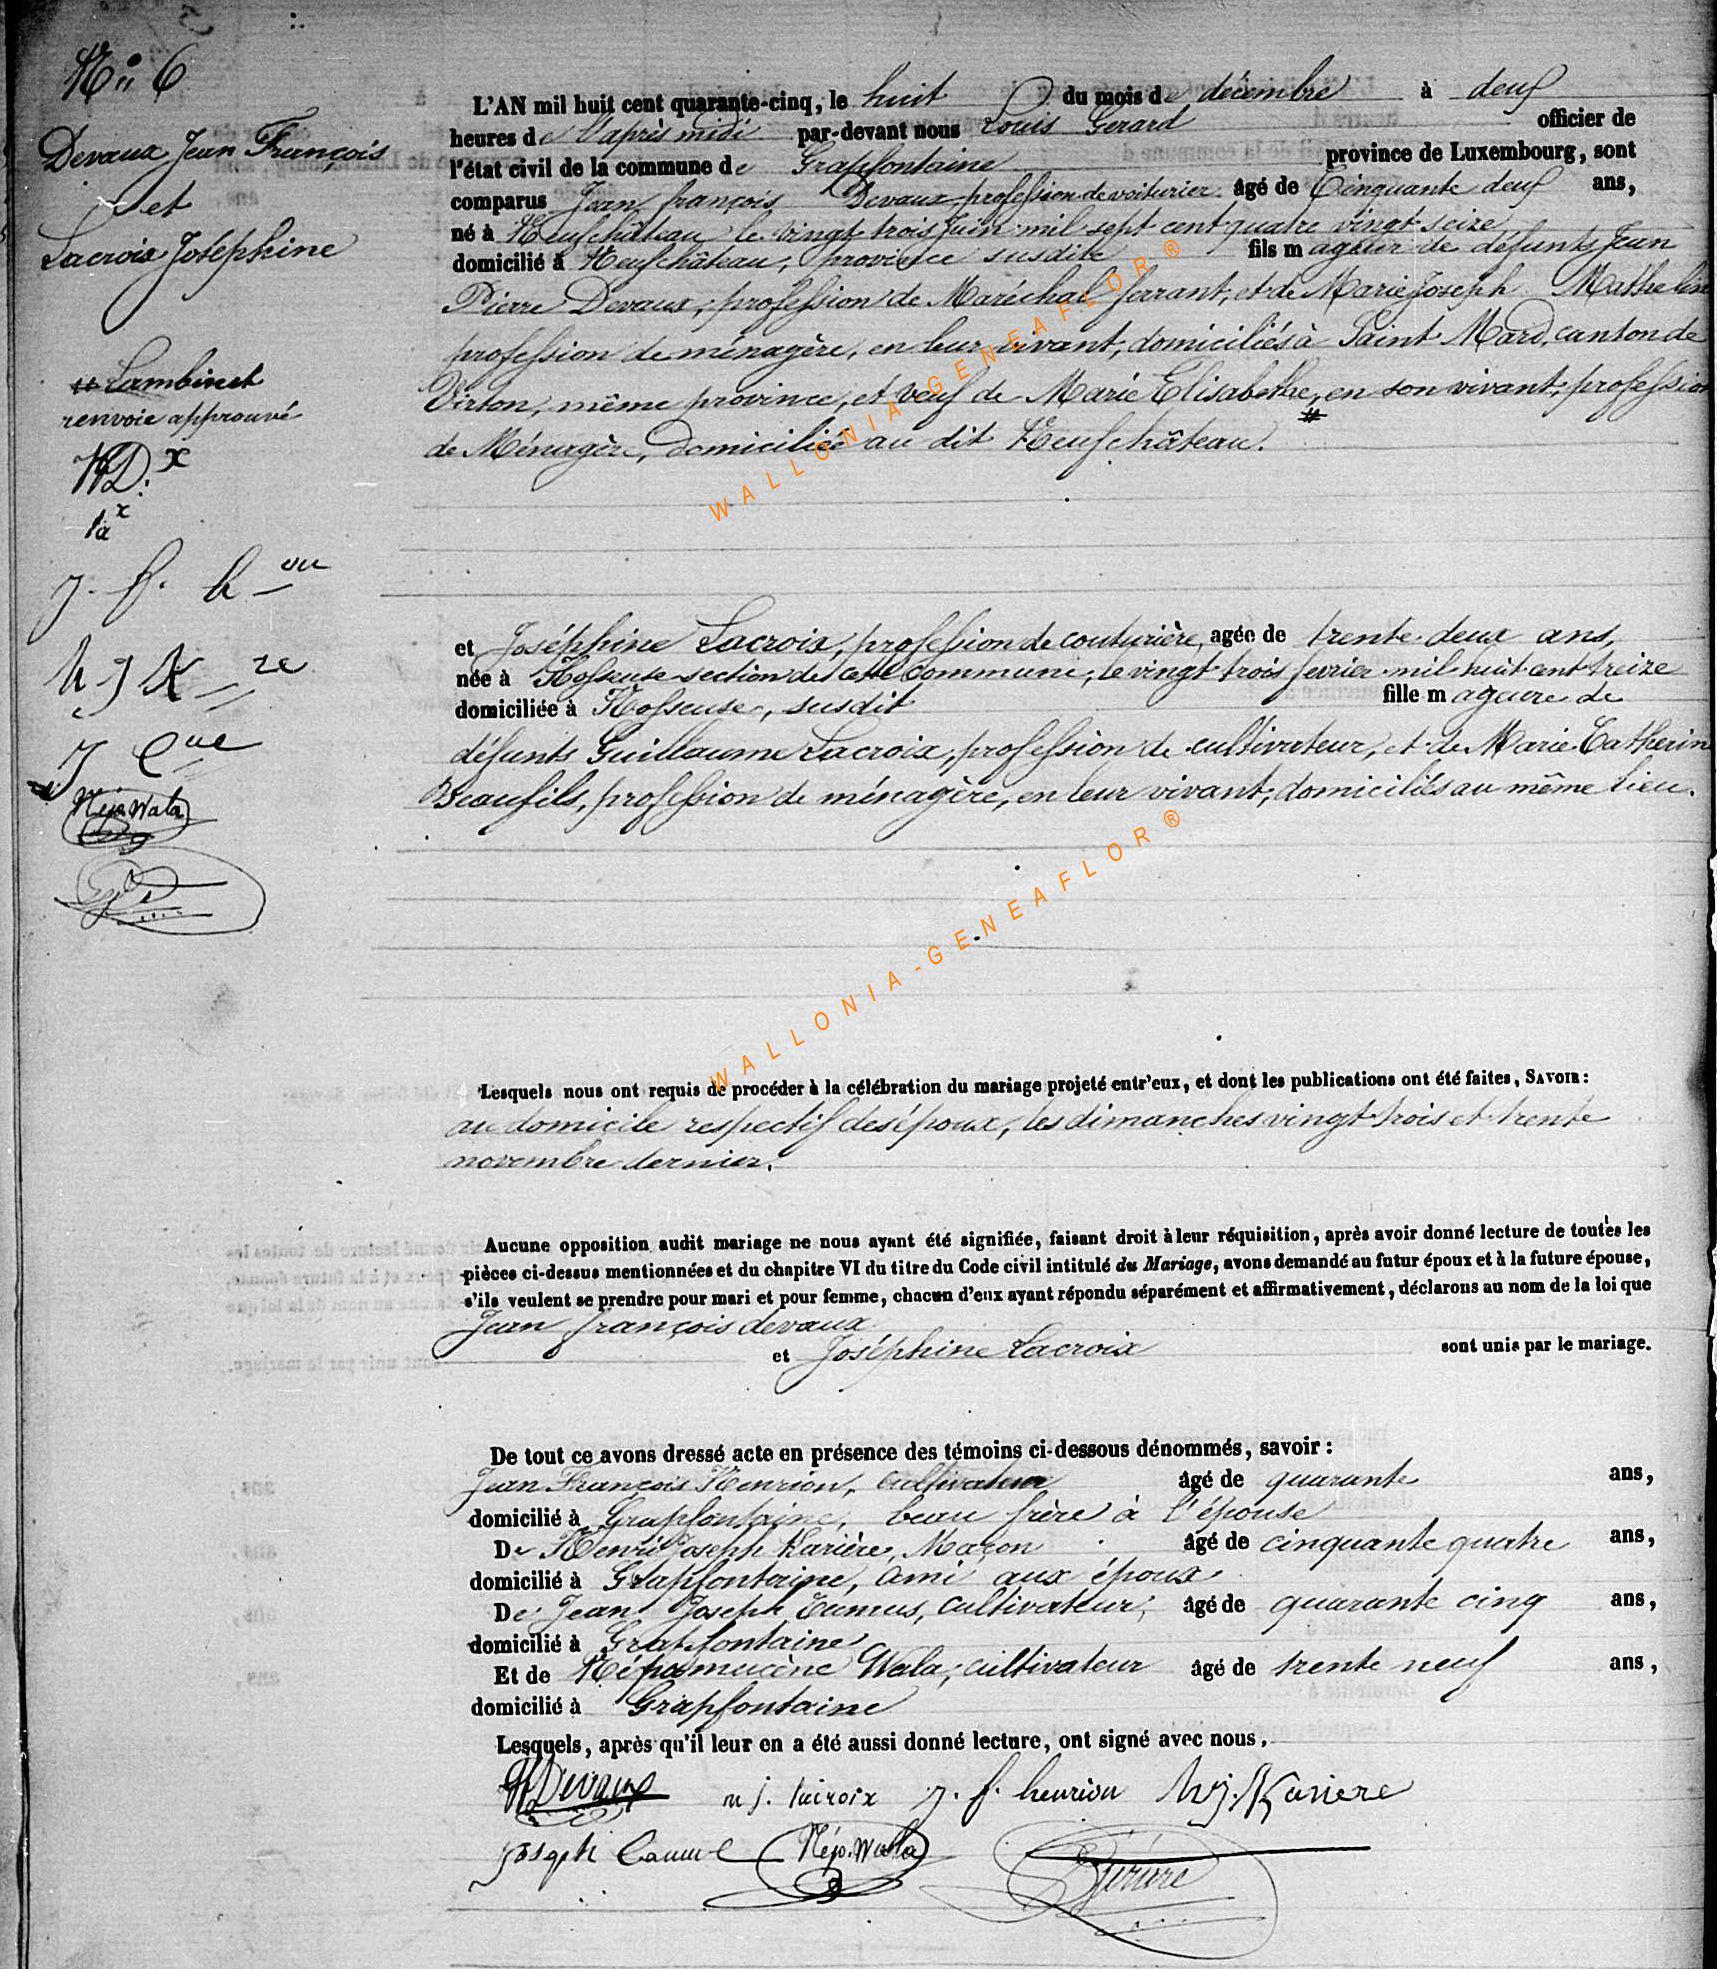 N° 6
Devaux Jean François
et
Lacroix Joséphine
# Lambinet
renvoie approuvé
L'AN mil huit cent quarante-cinq, le huit du mois de décembre à deux
heures de l'après midi par-devant nous Louis Gerard officier de
l'état civil de la commune de Grapfontaine province de Luxembourg, sont
comparus Jean françois Devaux profession de voiturier âgé de Cinquante deux ans,
né à Neufchâteau le vingt trois Juin mil sept cent quatre vingt seize
domicilié à Neufchâteau, province susdite fils mageur de défunts Jean
Pierre Devaux, profession de Maréchal ferrant, et de Marie Joseph Mathelin
profession de ménagère, en leur vivant, domiciliés à Saint Mard, canton de
Virton, même province, et veuf de Marie Elisabethe, # en son vivant, profession
de Ménagère, domiciliée au dit Neufchâteau.
et Joséphine Lacroix, profession de couturière, agée de trente deux ans,
née à Hosseuse section de cette commune, le vingt trois fevrier mil huit cent treize
domiciliée à Hosseuse, susdit fille mageure de
défunts Guillaume Lacroix, profession de cultivateur, et de Marie Catherine
Beaufils, profession de ménagère, en leur vivant, domiciliés au même lieu.
Lesquels nous ont requis de procéder à la célébration du mariage projeté entr'eux, et dont les publications ont été faites, SAVOIR :
au domicile respectif des époux, les dimanches vingt trois et trente
novembre dernier.
Aucune opposition audit mariage ne nous ayant été signifiée, faisant droit à leur réquisition, après avoir donné lecture de toutes les
pièces ci-dessus mentionnées et du chapitre VI du titre du Code civil intitulé du Mariage, avons demandé au futur époux et à la future épouse,
s'ils veulent se prendre pour mari et pour femme, chacun d'eux ayant répondu séparément et affirmativement, déclarons au nom de la loi que
Jean françois devaux
et Joséphine Lacroix sont unis par le mariage.
De tout ce avons dressé acte en présence des témoins ci-dessous dénommés, savoir :
Jean François Henrion, cultivateur âgé de quarante ans,
domicilié à Grapfontaine, beau frère à l'épouse
De Henri Joseph Karière, Maçon âgé de cinquante quatre ans,
domicilié à Grapfontaine, ami aux époux
De Jean Joseph cultivateur, âgé de quarante cinq ans,
domicilié à Grapfontaine
Et de Népomucène Wala, cultivateur âgé de trente neuf ans,
domicilié à Grapfontaine
Lesquels, après qu'il leur en a été aussi donné lecture, ont signé avec nous.
Devaux m j. lacroix j. f. henrion h j. Kariere
joseph Nép. Wala
Nép. Wala
WALLONIA-GENEAFLOR ®
WALLONIA-GENEAFLOR ®